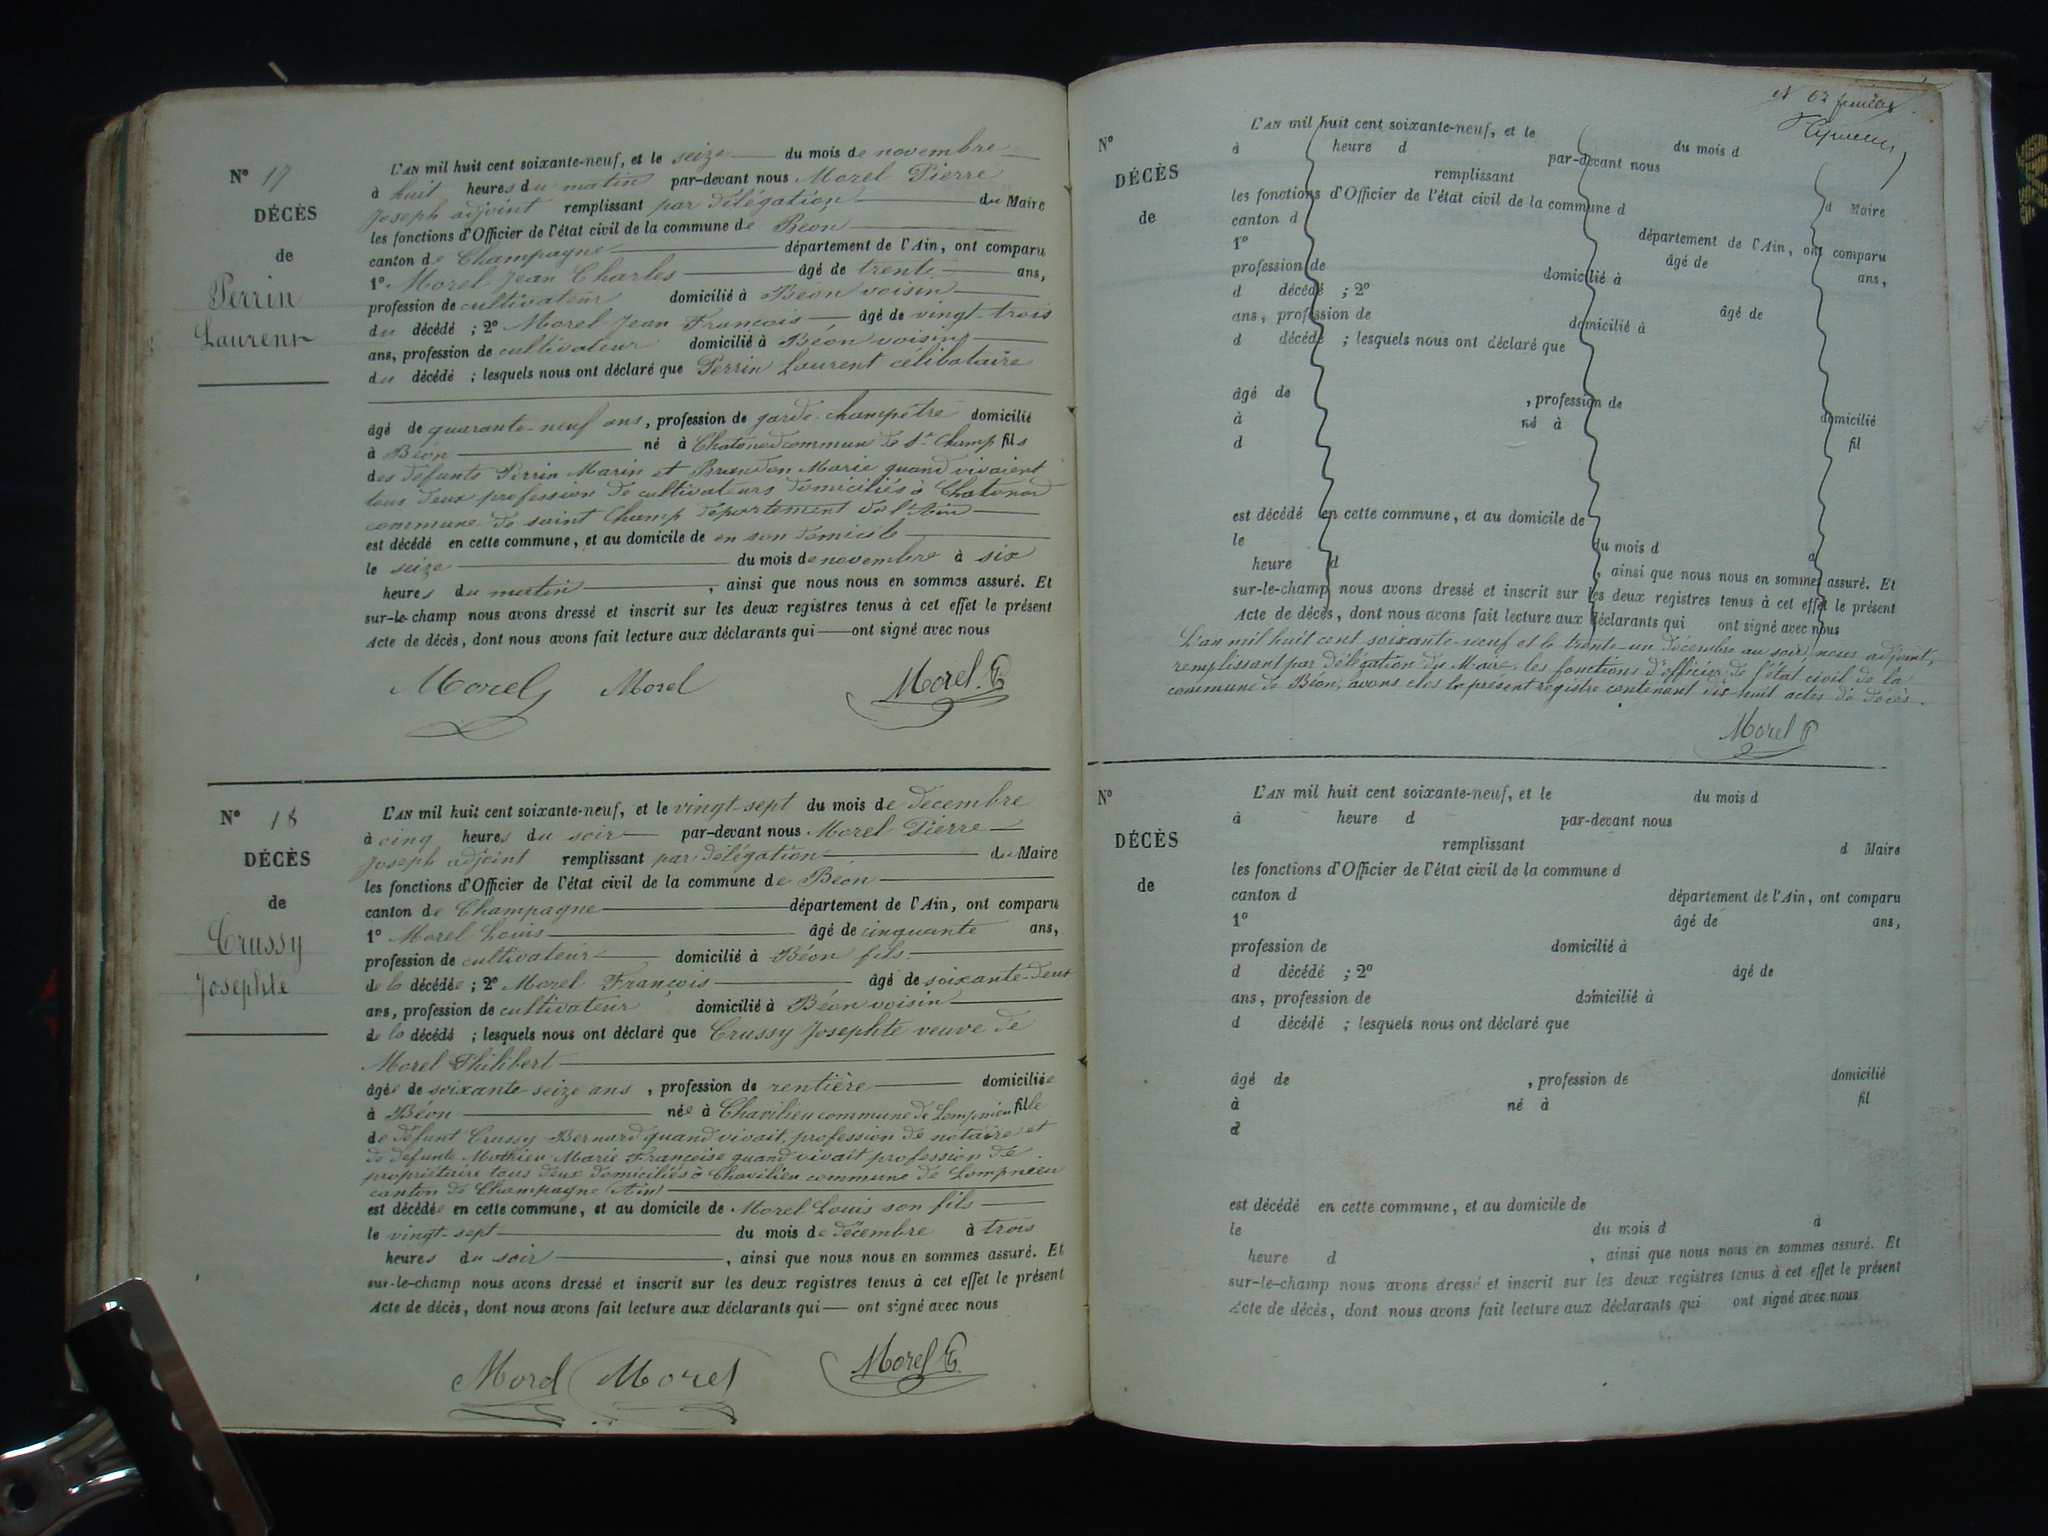 N° 17
DÉCÈS
de
Perrin
Laurent
L'AN mil huit cent soixante-neuf, et le seize du mois de novembre
à huit heures du matin par-devant nous Morel Pierre
Joseph adjoint remplissant par délégation du Maire
les fonctions d'Officier de l'état civil de la commune de Béon
canton de Champagne département de l'Ain, ont comparu
1° Morel Jean Charles âgé de trente ans,
profession de cultivateur domicilié à Béon voisin
du décédé ; 2° Morel Jean François âgé de vingt-trois
ans, profession de cultivateur domicilié à Béon voisin
du décédé ; lesquels nous ont déclaré que Perrin Laurent célibataire
âgé de quarante-neuf ans, profession de garde-champêtre domicilié
à Béon né à Chatonod commune de St Champ fils
des défunts Perrin Marin et Brandon Marie quand vivaient
tous deux profession de cultivateurs domiciliés à Chatonod
commune de saint Champ département de l'Ain
est décédé en cette commune, et au domicile de en son domicile
le seize du mois de novembre à six
heures du matin, ainsi que nous nous en sommes assuré. Et
sur-le-champ nous avons dressé et inscrit sur les deux registres tenus à cet effet le présent
Acte de décès, dont nous avons fait lecture aux déclarants qui ont signé avec nous
Morel Morel Morel P
N° 18
DÉCÈS
de
Crussy
Josephte
L'AN mil huit cent soixante-neuf, et le vingt-sept du mois de décembre
à cinq heures du soir par-devant nous Morel Pierre
Joseph adjoint remplissant par délégation du Maire
les fonctions d'Officier de l'état civil de la commune de Béon
canton de Champagne département de l'Ain, ont comparu
1° Morel Louis âgé de cinquante ans,
profession de cultivateur domicilié à Béon fils
de la décédée ; 2° Morel François âgé de soixante-deux
ans, profession de cultivateur domicilié à Béon voisin
de la décédé ; lesquels nous ont déclaré que Crussy Josephte veuve de
Morel Philibert
âgée de soixante seize ans, profession de rentière domiciliée
à Béon née à Chavilieu commune de Lompnieu fille
de défunt Crussy Bernard quand vivait profession de notaire et
de défunte Mathieu Marie Françoise quand vivait profession de
propriétaire tous deux domiciliés à Chavilieu commune de Lompnieu
canton de Champagne (Ain)
est décédée en cette commune, et au domicile de Morel Louis son fils
le vingt-sept du mois de décembre à trois
heures du soir, ainsi que nous nous en sommes assuré. Et
sur-le-champ nous avons dressé et inscrit sur les deux registres tenus à cet effet le présent
Acte de décès, dont nous avons fait lecture aux déclarants qui ont signé avec nous
Morel Morel Morel P
N°
DÉCÈS
de
L'AN mil huit cent soixante-neuf, et le du mois d
à heure d par-devant nous
remplissant d Maire
les fonctions d'Officier de l'état civil de la commune d
canton d département de l'Ain, ont comparu
1° âgé de ans,
profession de domicilié à
d décédé ; 2° âgé de
ans, profession de domicilié à
d décédé ; lesquels nous ont déclaré que
âgé de , profession de domicilié
à né à fil
d
est décédé en cette commune, et au domicile de
le du mois d à
heure d , ainsi que nous nous en sommes assuré. Et
sur-le-champ nous avons dressé et inscrit sur les deux registres tenus à cet effet le présent
Acte de décès, dont nous avons fait lecture aux déclarants qui ont signé avec nous
L'an mil huit cent soixante-neuf et le trente-un décembre au soir, nous adjoint,
remplissant par délégation du Maire les fonctions d'officier de l'état civil de la
commune de Béon, avons clos le présent registre contenant dix huit actes de décès.
Morel P
N°
DÉCÈS
de
L'AN mil huit cent soixante-neuf, et le du mois d
à heure d par-devant nous
remplissant d Maire
les fonctions d'Officier de l'état civil de la commune d
canton d département de l'Ain, ont comparu
1° âgé de ans,
profession de domicilié à
d décédé ; 2° âgé de
ans, profession de domicilié à
d décédé ; lesquels nous ont déclaré que
âgé de , profession de domicilié
à né à fil
d
est décédé en cette commune, et au domicile de
le du mois d à
heure d , ainsi que nous nous en sommes assuré. Et
sur-le-champ nous avons dressé et inscrit sur les deux registres tenus à cet effet le présent
Acte de décès, dont nous avons fait lecture aux déclarants qui ont signé avec nous